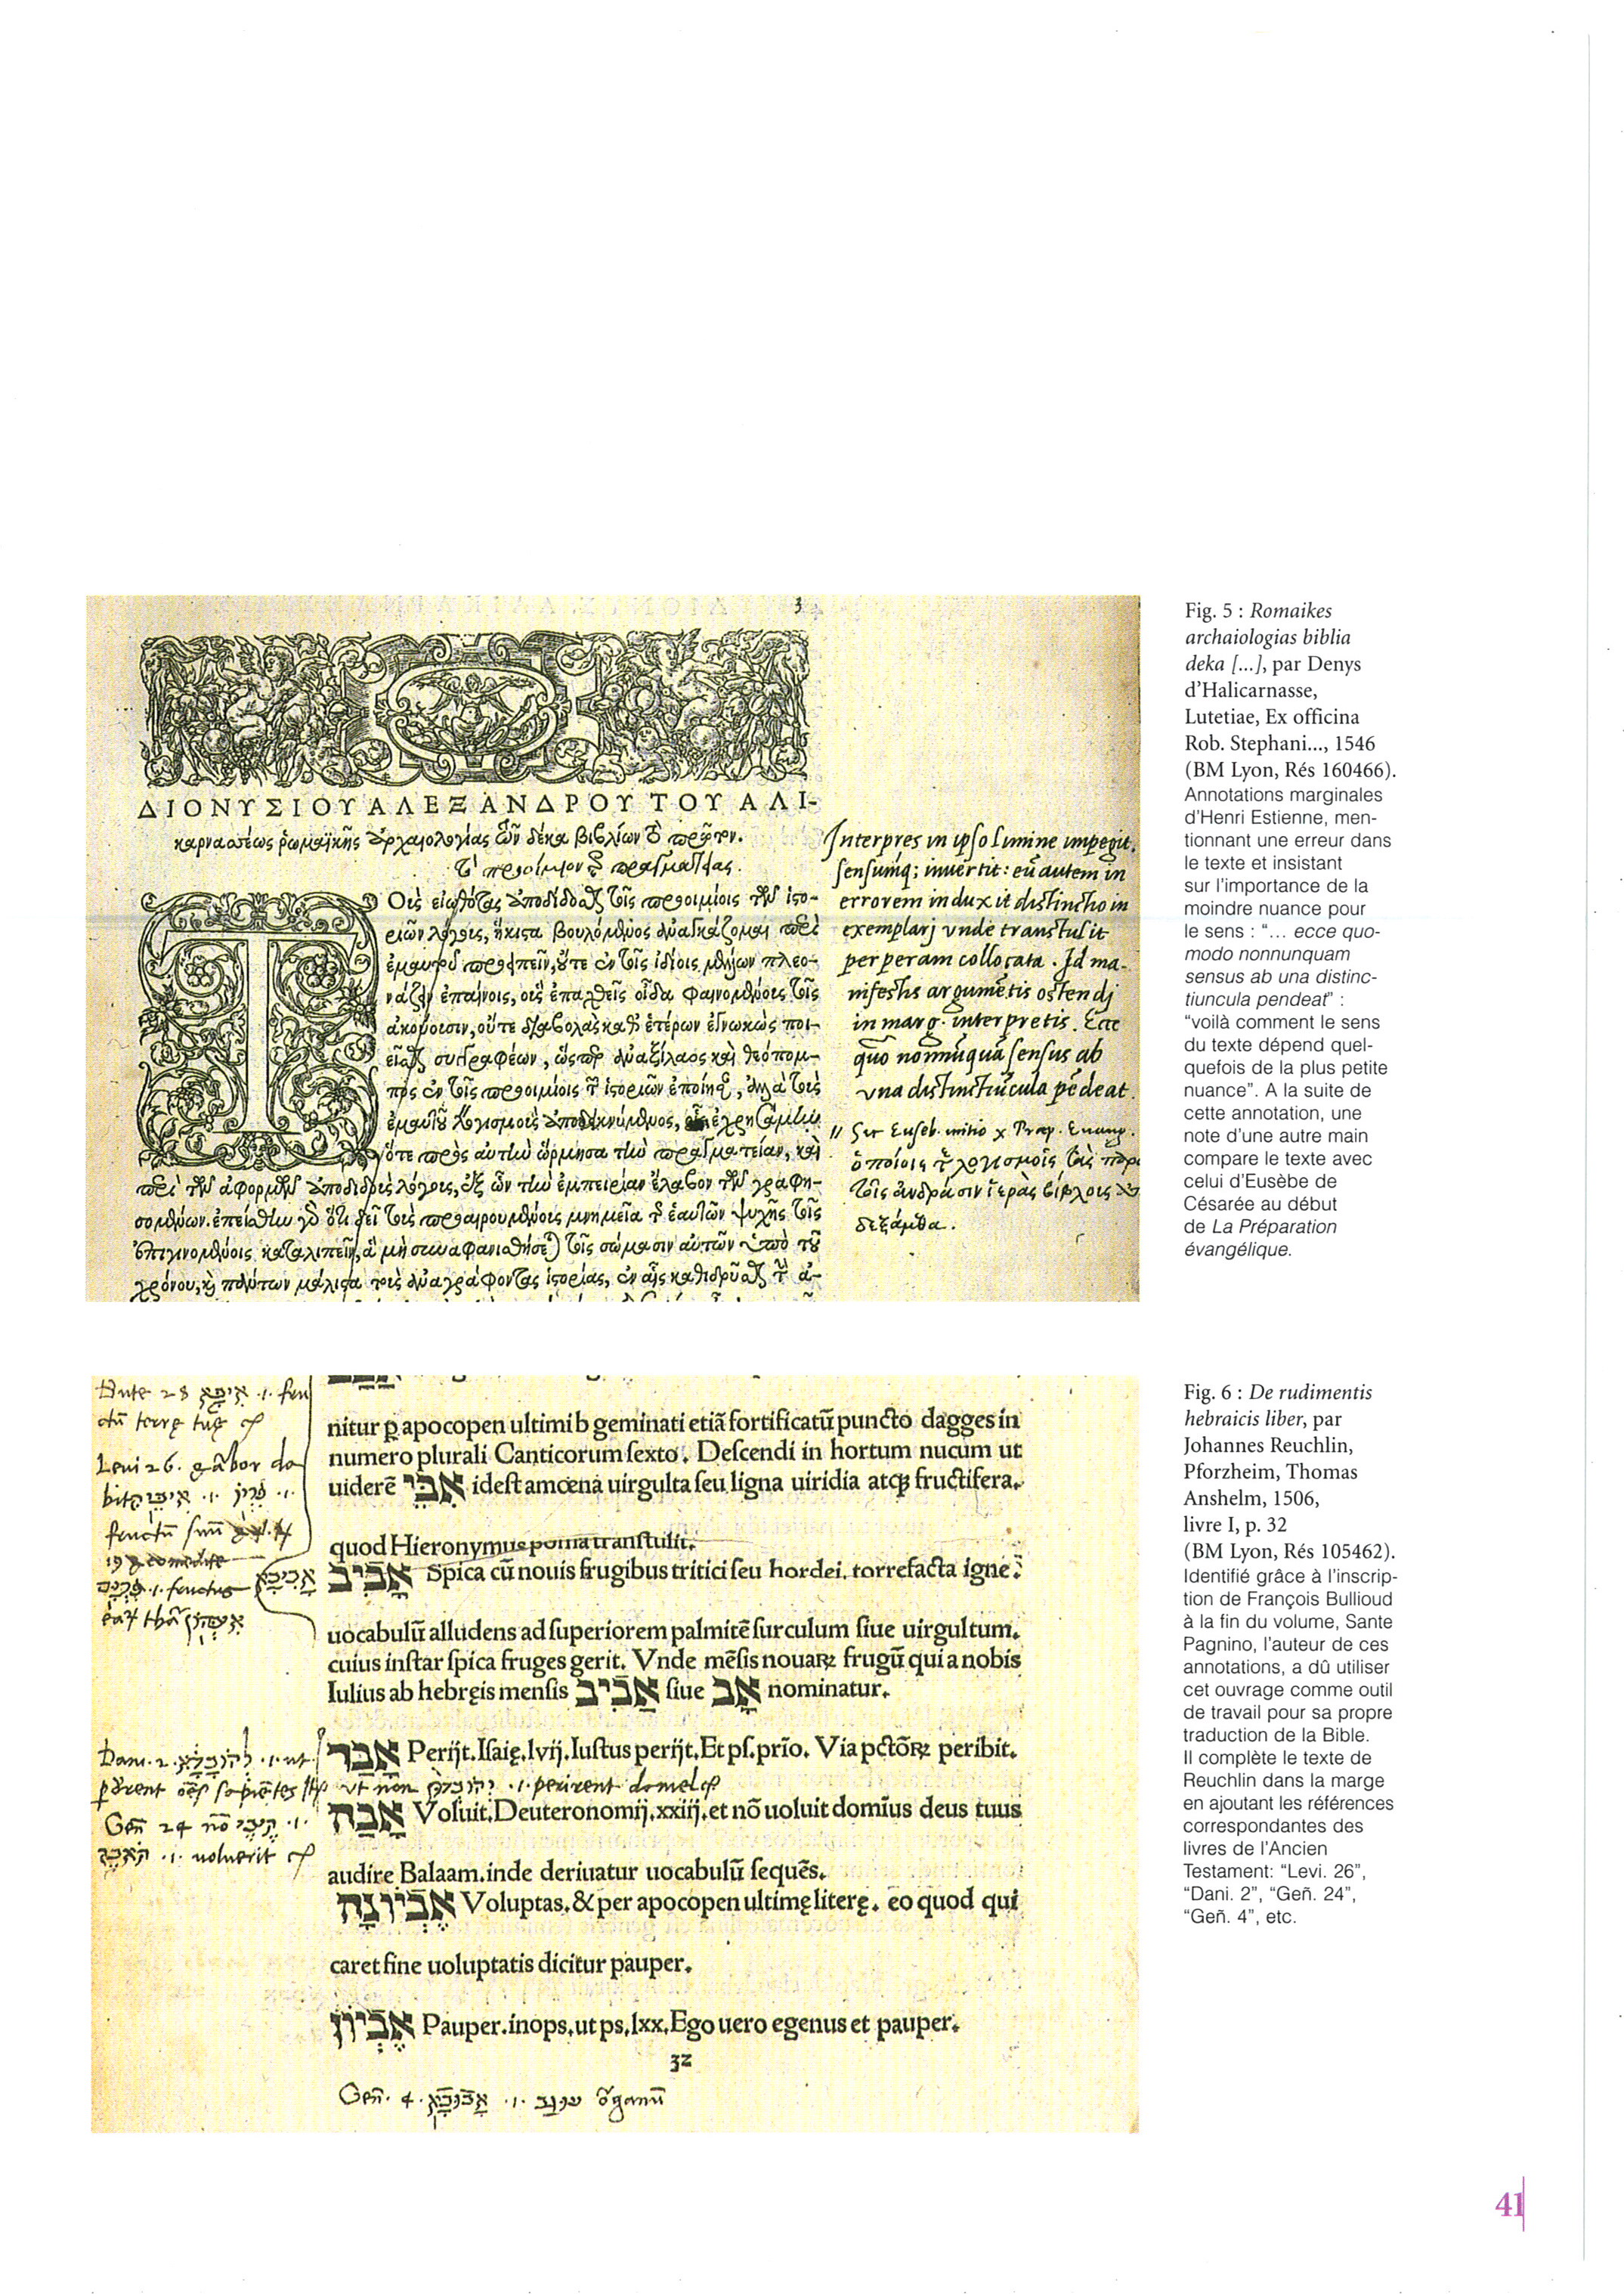 3
ΔΙΟΝΥΣΙΟΥ ΑΛΕΞΑΝΔΡΟΥ ΤΟΥ ΑΛΙ-
καρνασέως ῥωμαϊκῆς ἀρχαιολογίας τῶν δέκα βιβλίων τὸ πρῶτον.
Τὸ προοίμιον τῆς πραγματείας.
Τοὺς εἰωθότας ἀποδίδοσθαι τοῖς προοιμίοις τῶν ἱσο-
ριῶν λόγους, ἥκιστα βουλόμενος ἀναγκάζομαι περὶ
ἐμαυτοῦ προειπεῖν, οὔτε ἐν τοῖς ἰδίοις μέλλων πλεο-
νάζειν ἐπαίνοις, οὓς ἐπαχθεῖς οἶδα φαινομένους τοῖς
ἀκούουσιν, οὔτε διαβολὰς καθ' ἑτέρων ἐγνωκὼς ποι-
εῖσθαι συγγραφέων, ὥσπερ ἀναξίλαος καὶ θεόπομ-
πος ἐν τοῖς προοιμίοις τῶν ἱστοριῶν ἐποίησαν, ἀλλὰ τοὺς
ἐμαυτοῦ λογισμοὺς ἀποδεικνύμενος, οἷς ἐχρησάμην
ὅτε πρὸς αὐτὴν ὥρμησα τὴν πραγματείαν, καὶ
περὶ τῶν ἀφορμῶν ἀποδιδοὺς λόγους, ἐξ ὧν τὴν ἐμπειρίαν ἔλαβον τῶν γραφη-
σομένων. ἐπείσθην γὰρ ὅτι δεῖ τοὺς προαιρουμένους μνημεῖα τῆς ἑαυτῶν ψυχῆς τοῖς
ἐπιγινομένοις καταλιπεῖν, ἃ μὴ συναφανισθήσεται τοῖς σώμασιν αὐτῶν ὑπὸ τοῦ
χρόνου, καὶ πάντων μάλιστα τοὺς ἀναγράφοντας ἱστορίας, ἐν αἷς καθιδρῦσθαι τὴν ἀ-
Interpres in ipso limine impegit,
sensumq; inuertit: eũ autem in
errorem induxit distinctio in
exemplarj vnde transtulit
perperam collocata. Id ma-
nifestis argumẽtis ostendj
in marg. interpretis. Ecce
quo nonnũquã sensus ab
vna distinctiũcula pẽdeat.
// Sic Euseb. initio x Præp. Euang.
Fig. 5 : Romaikes
archaiologias biblia
deka [...], par Denys
d’Halicarnasse,
Lutetiae, Ex officina
Rob. Stephani..., 1546
(BM Lyon, Rés 160466).
Annotations marginales
d’Henri Estienne, men-
tionnant une erreur dans
le texte et insistant
sur l’importance de la
moindre nuance pour
le sens : “... ecce quo-
modo nonnunquam
sensus ab una distinc-
tiuncula pendeat” :
“voilà comment le sens
du texte dépend quel-
quefois de la plus petite
nuance”. A la suite de
cette annotation, une
note d’une autre main
compare le texte avec
celui d’Eusèbe de
Césarée au début
de La Préparation
évangélique.
nitur p apocopen ultimi b geminati etiã fortificatũ puncto dagges in
numero plurali Canticorum sexto. Descendi in hortum nucum ut
uiderẽ אִבֵּי idest amœna uirgulta seu ligna uiridia atq; fructifera.
quod Hieronymus poma transtulit.
אָבִיב Spica cũ nouis frugibus tritici seu hordei. torrefacta igne:
uocabulũ alludens ad superiorem palmitẽ surculum siue uirgultum.
cuius instar spica fruges gerit. Vnde mẽsis nouarꝝ frugũ qui a nobis
Iulius ab hebręis mensis אָבִיב siue אָב nominatur.
אָבַד Perijt. Isaię. lvij. Iustus perijt. Et ps. prĩo. Via pctõꝝ peribit.
אָבָה Voluit. Deuteronomij. xxiij. et nõ uoluit domĩus deus tuus
audire Balaam. inde deriuatur uocabulũ sequẽs.
אֶבְיוֹנָה Voluptas. & per apocopen ultimę literę. eo quod qui
caret fine uoluptatis dicitur pauper.
אֶבְיוֹן Pauper. inops. ut ps. lxx. Ego uero egenus et pauper.
32
Fig. 6 : De rudimentis
hebraicis liber, par
Johannes Reuchlin,
Pforzheim, Thomas
Anshelm, 1506,
livre I, p. 32
(BM Lyon, Rés 105462).
Identifié grâce à l’inscrip-
tion de François Bullioud
à la fin du volume, Sante
Pagnino, l’auteur de ces
annotations, a dû utiliser
cet ouvrage comme outil
de travail pour sa propre
traduction de la Bible.
Il complète le texte de
Reuchlin dans la marge
en ajoutant les références
correspondantes des
livres de l’Ancien
Testament: “Levi. 26”,
“Dani. 2”, “Geñ. 24”,
“Geñ. 4”, etc.
41